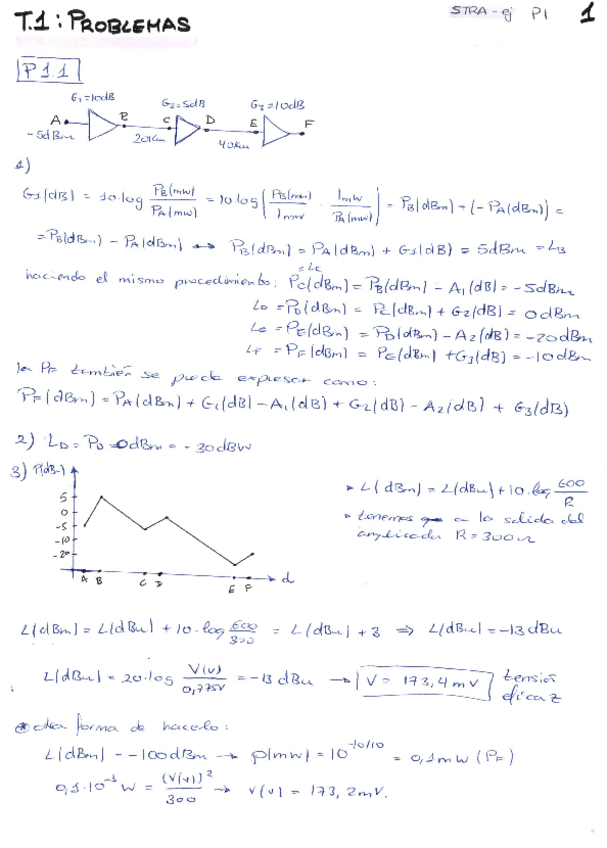 STRA-ej P1 1
T.1: PROBLEMAS
P1.1
G1=10dB G2=5dB G3=10dB
A B C D E F
-5dBm 20Km 40Km
1)
G1(dB) = 10·log PB(mW)/PA(mW) = 10·log( PB(mW)/1mW · 1mW/PA(mW) ) = PB(dBm) + (-PA(dBm)) =
= PB(dBm) - PA(dBm) ↔ PB(dBm) = PA(dBm) + G1(dB) = 5dBm = LB
haciendo el mismo procedimiento: PC(dBm) = PB(dBm) - A1(dB) = -5dBm
=LC
LD = PD(dBm) = PC(dBm) + G2(dB) = 0dBm
LE = PE(dBm) = PD(dBm) - A2(dB) = -20dBm
LF = PF(dBm) = PE(dBm) + G3(dB) = -10dBm
la PF también se puede expresar como:
PF(dBm) = PA(dBm) + G1(dB) - A1(dB) + G2(dB) - A2(dB) + G3(dB)
2) LD = PD = 0dBm = -30dBW
3) P(dBm)
5
0
-5
-10
-20
A B C D E F d
L(dBm) = L(dBu) + 10·log 600/R
tenemos a la salida del
amplificador R = 300Ω
L(dBm) = L(dBu) + 10·log 600/300 = L(dBu) + 3 ⇒ L(dBu) = -13dBu
L(dBu) = 20·log V(v)/0,775V = -13dBu → V = 173,4mV tensión
eficaz
otra forma de hacerlo:
L(dBm) = -100dBm → p(mW) = 10^-10/10 = 0,1mW (PF)
0,1·10^-3 W = (V(v))^2/300 → V(v) = 173,2mV.